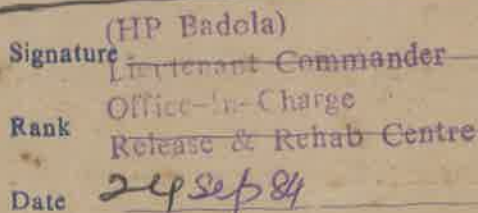 (HP Badola)
Signature
Lieutenant Commander
Office-in-Charge
Rank
Release & Rehab Centre
Date 24 Sep 84